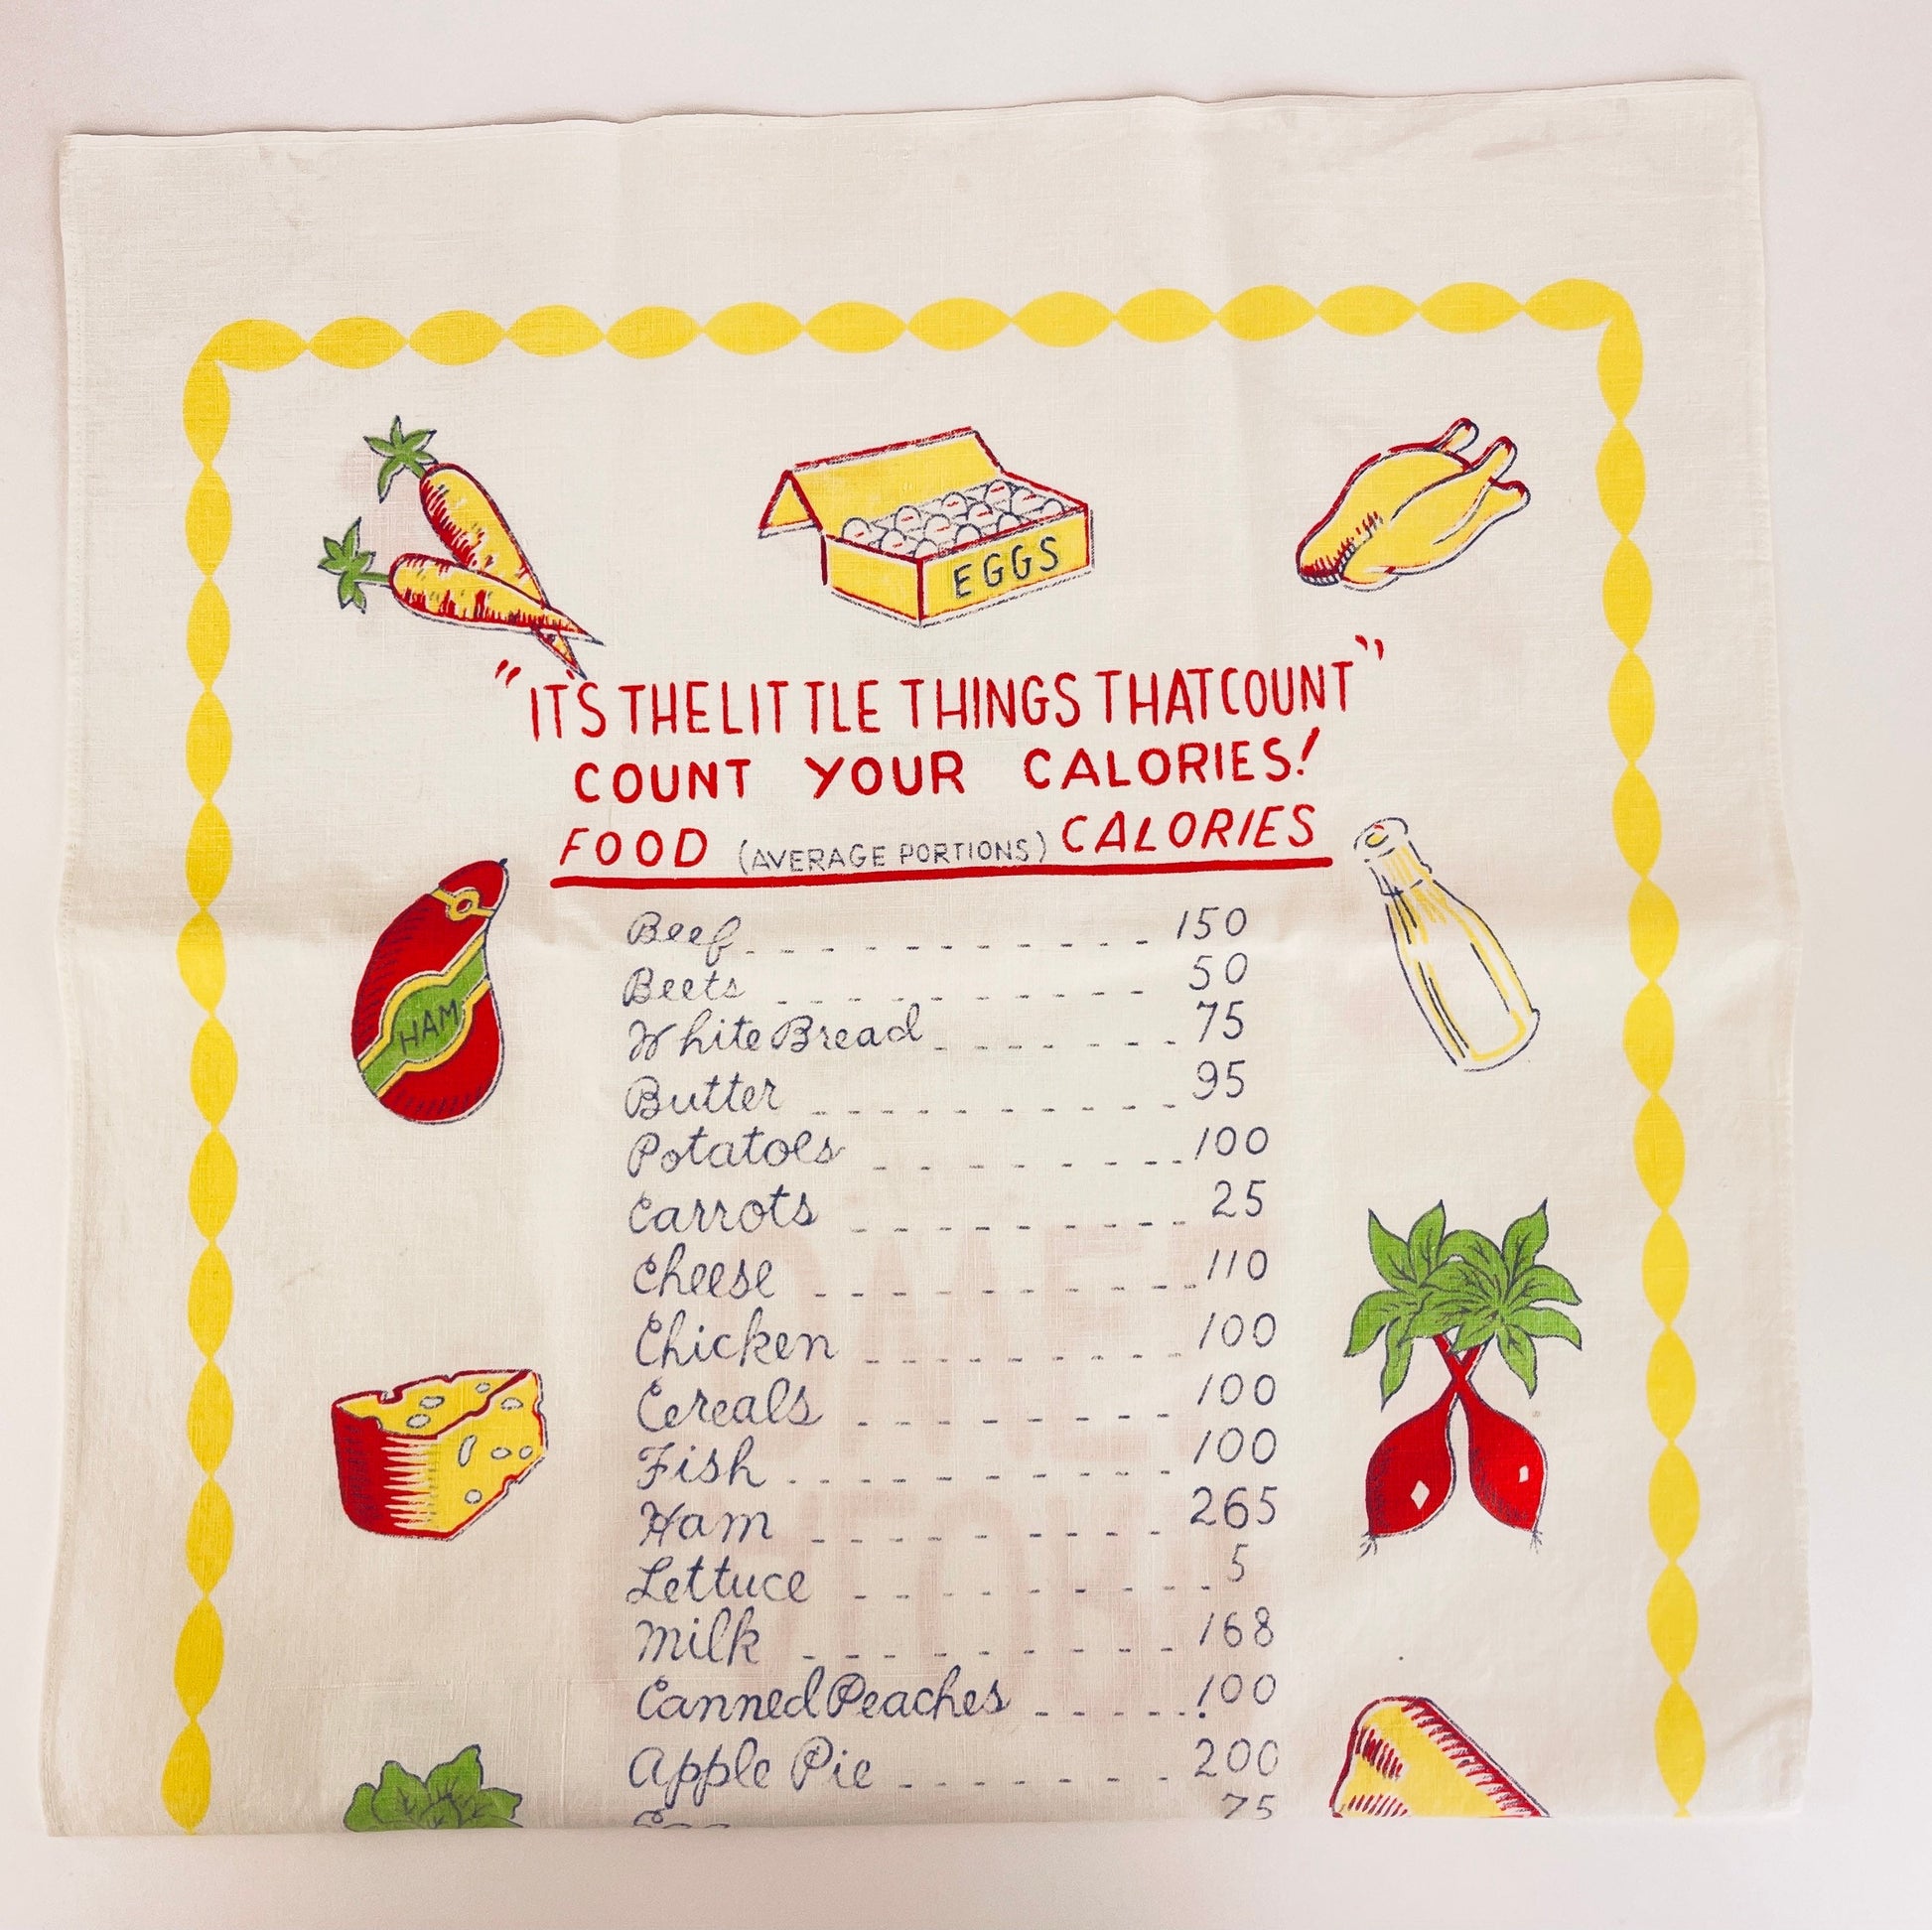 EGGS
"IT'S THE LITTLE THINGS THAT COUNT"
COUNT YOUR CALORIES!
FOOD (AVERAGE PORTIONS) CALORIES
HAM
Beef 150
Beets 50
White Bread 75
Butter 95
Potatoes 100
Carrots 25
Cheese 110
Chicken 100
Cereals 100
Fish 100
Ham 265
Lettuce 5
Milk 168
Canned Peaches 100
Apple Pie 200
75